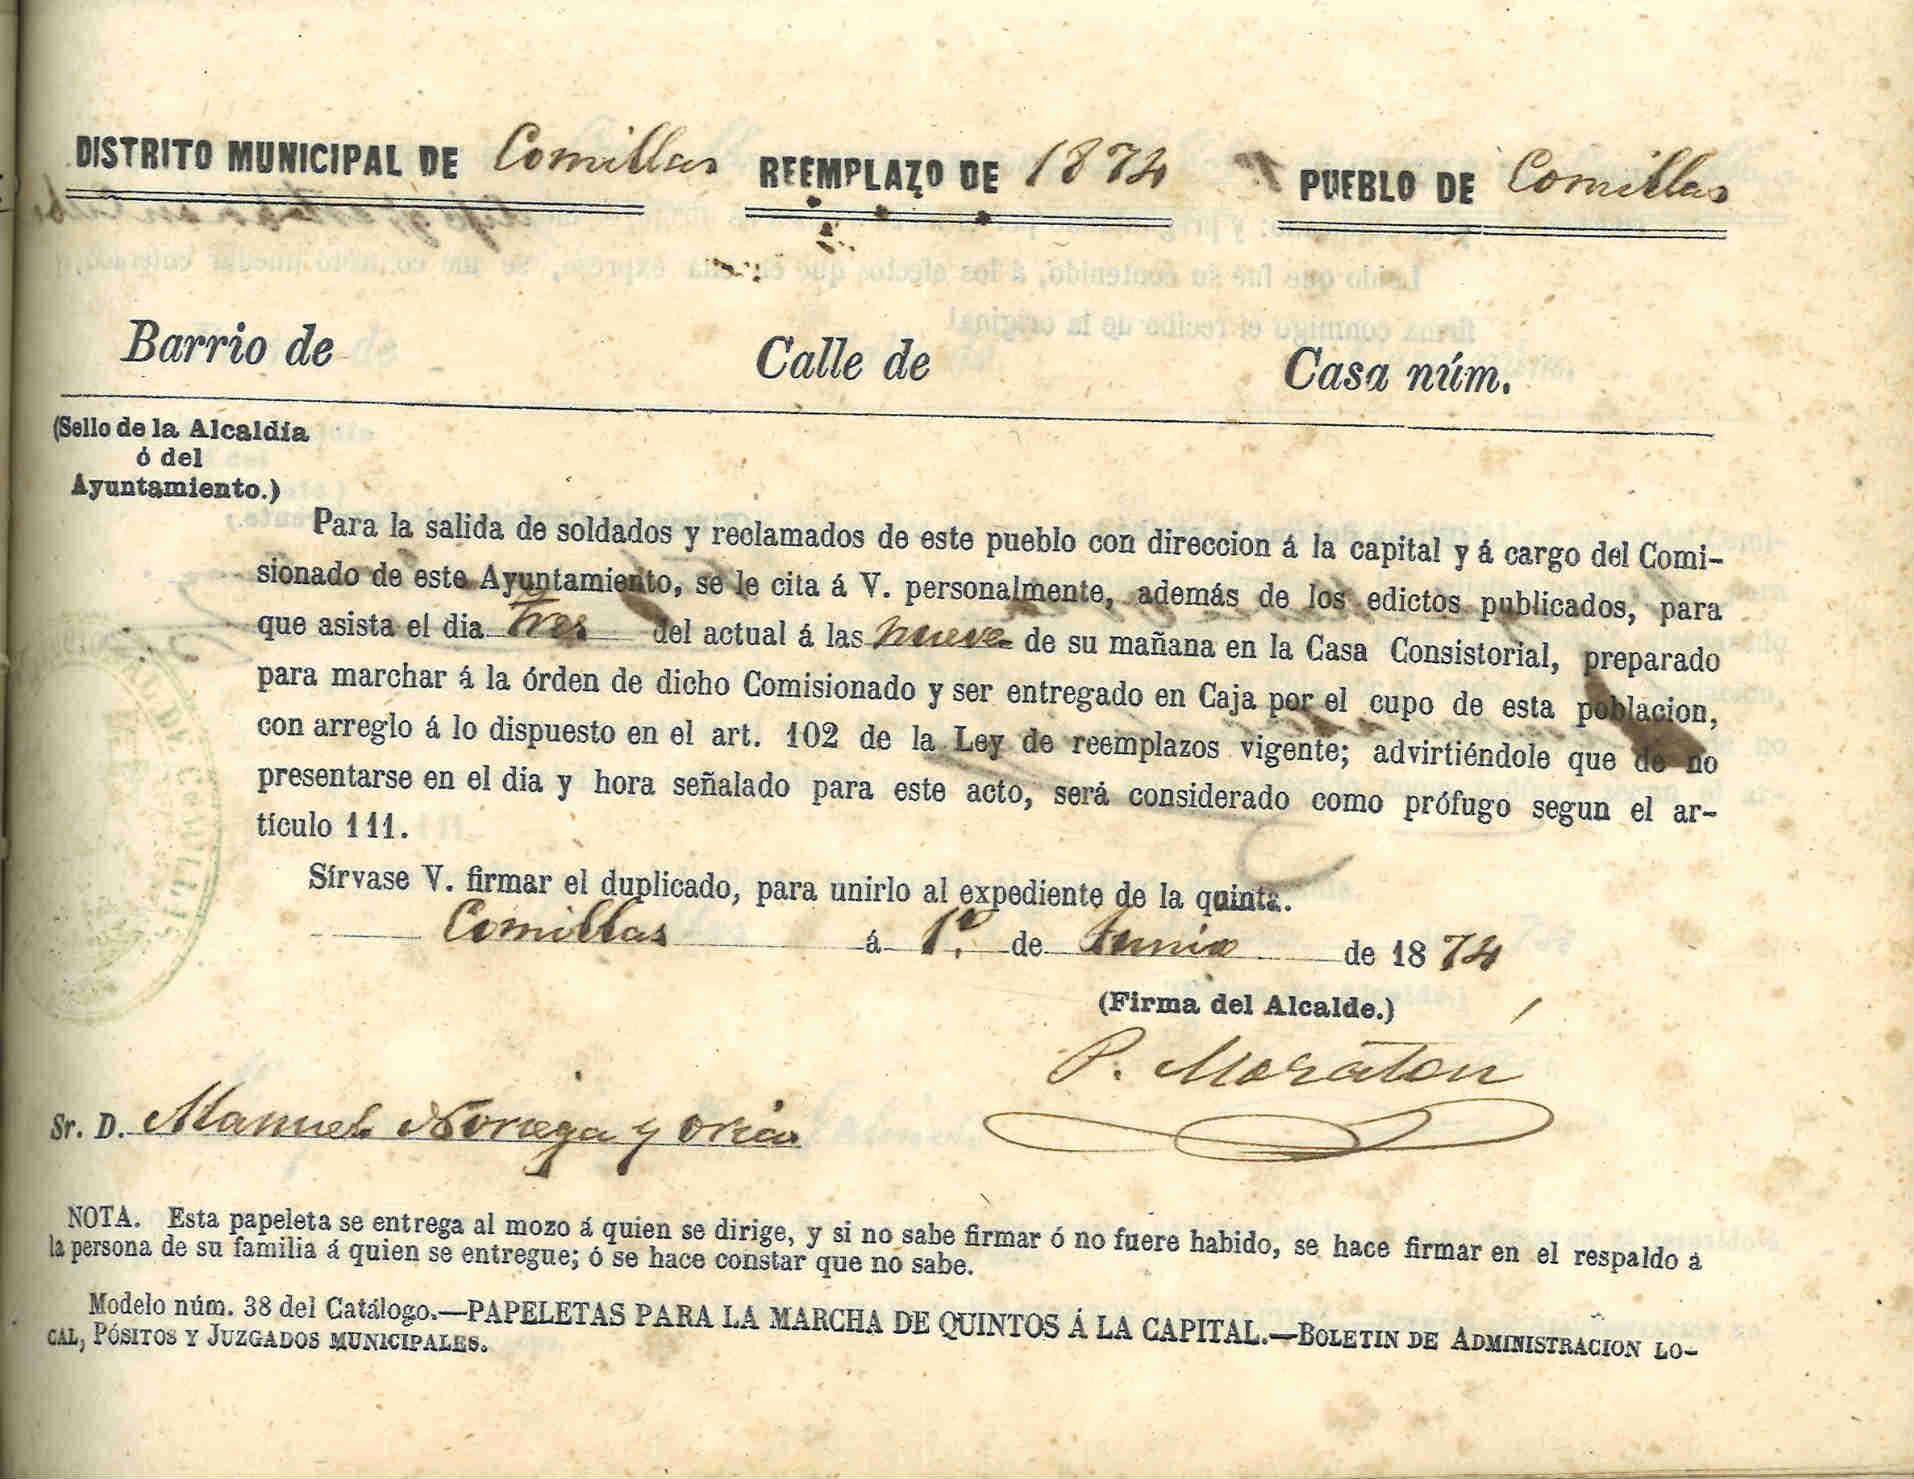 DISTRITO MUNICIPAL DE Comillas REEMPLAZO DE 1874 PUEBLO DE Comillas
Barrio de Calle de Casa núm.
(Sello de la Alcaldía
ó del
Ayuntamiento.)
Para la salida de soldados y reclamados de este pueblo con direccion á la capital y á cargo del Comi-
sionado de este Ayuntamiento, se le cita á V. personalmente, además de los edictos publicados, para
que asista el dia tres del actual á las nueve de su mañana en la Casa Consistorial, preparado
para marchar á la órden de dicho Comisionado y ser entregado en Caja por el cupo de esta poblacion,
con arreglo á lo dispuesto en el art. 102 de la Ley de reemplazos vigente; advirtiéndole que de no
presentarse en el dia y hora señalado para este acto, será considerado como prófugo segun el ar-
tículo 111.
Sírvase V. firmar el duplicado, para unirlo al expediente de la quinta.
Comillas á 1º. de Junio de 1874
(Firma del Alcalde.)
P. Moraton
Sr. D. Manuel Noriega y
NOTA. Esta papeleta se entrega al mozo á quien se dirige, y si no sabe firmar ó no fuere habido, se hace firmar en el respaldo á
la persona de su familia á quien se entregue; ó se hace constar que no sabe.
Modelo núm. 38 del Catálogo.—PAPELETAS PARA LA MARCHA DE QUINTOS Á LA CAPITAL.—BOLETIN DE ADMINISTRACION LO-
CAL, PÓSITOS Y JUZGADOS MUNICIPALES.